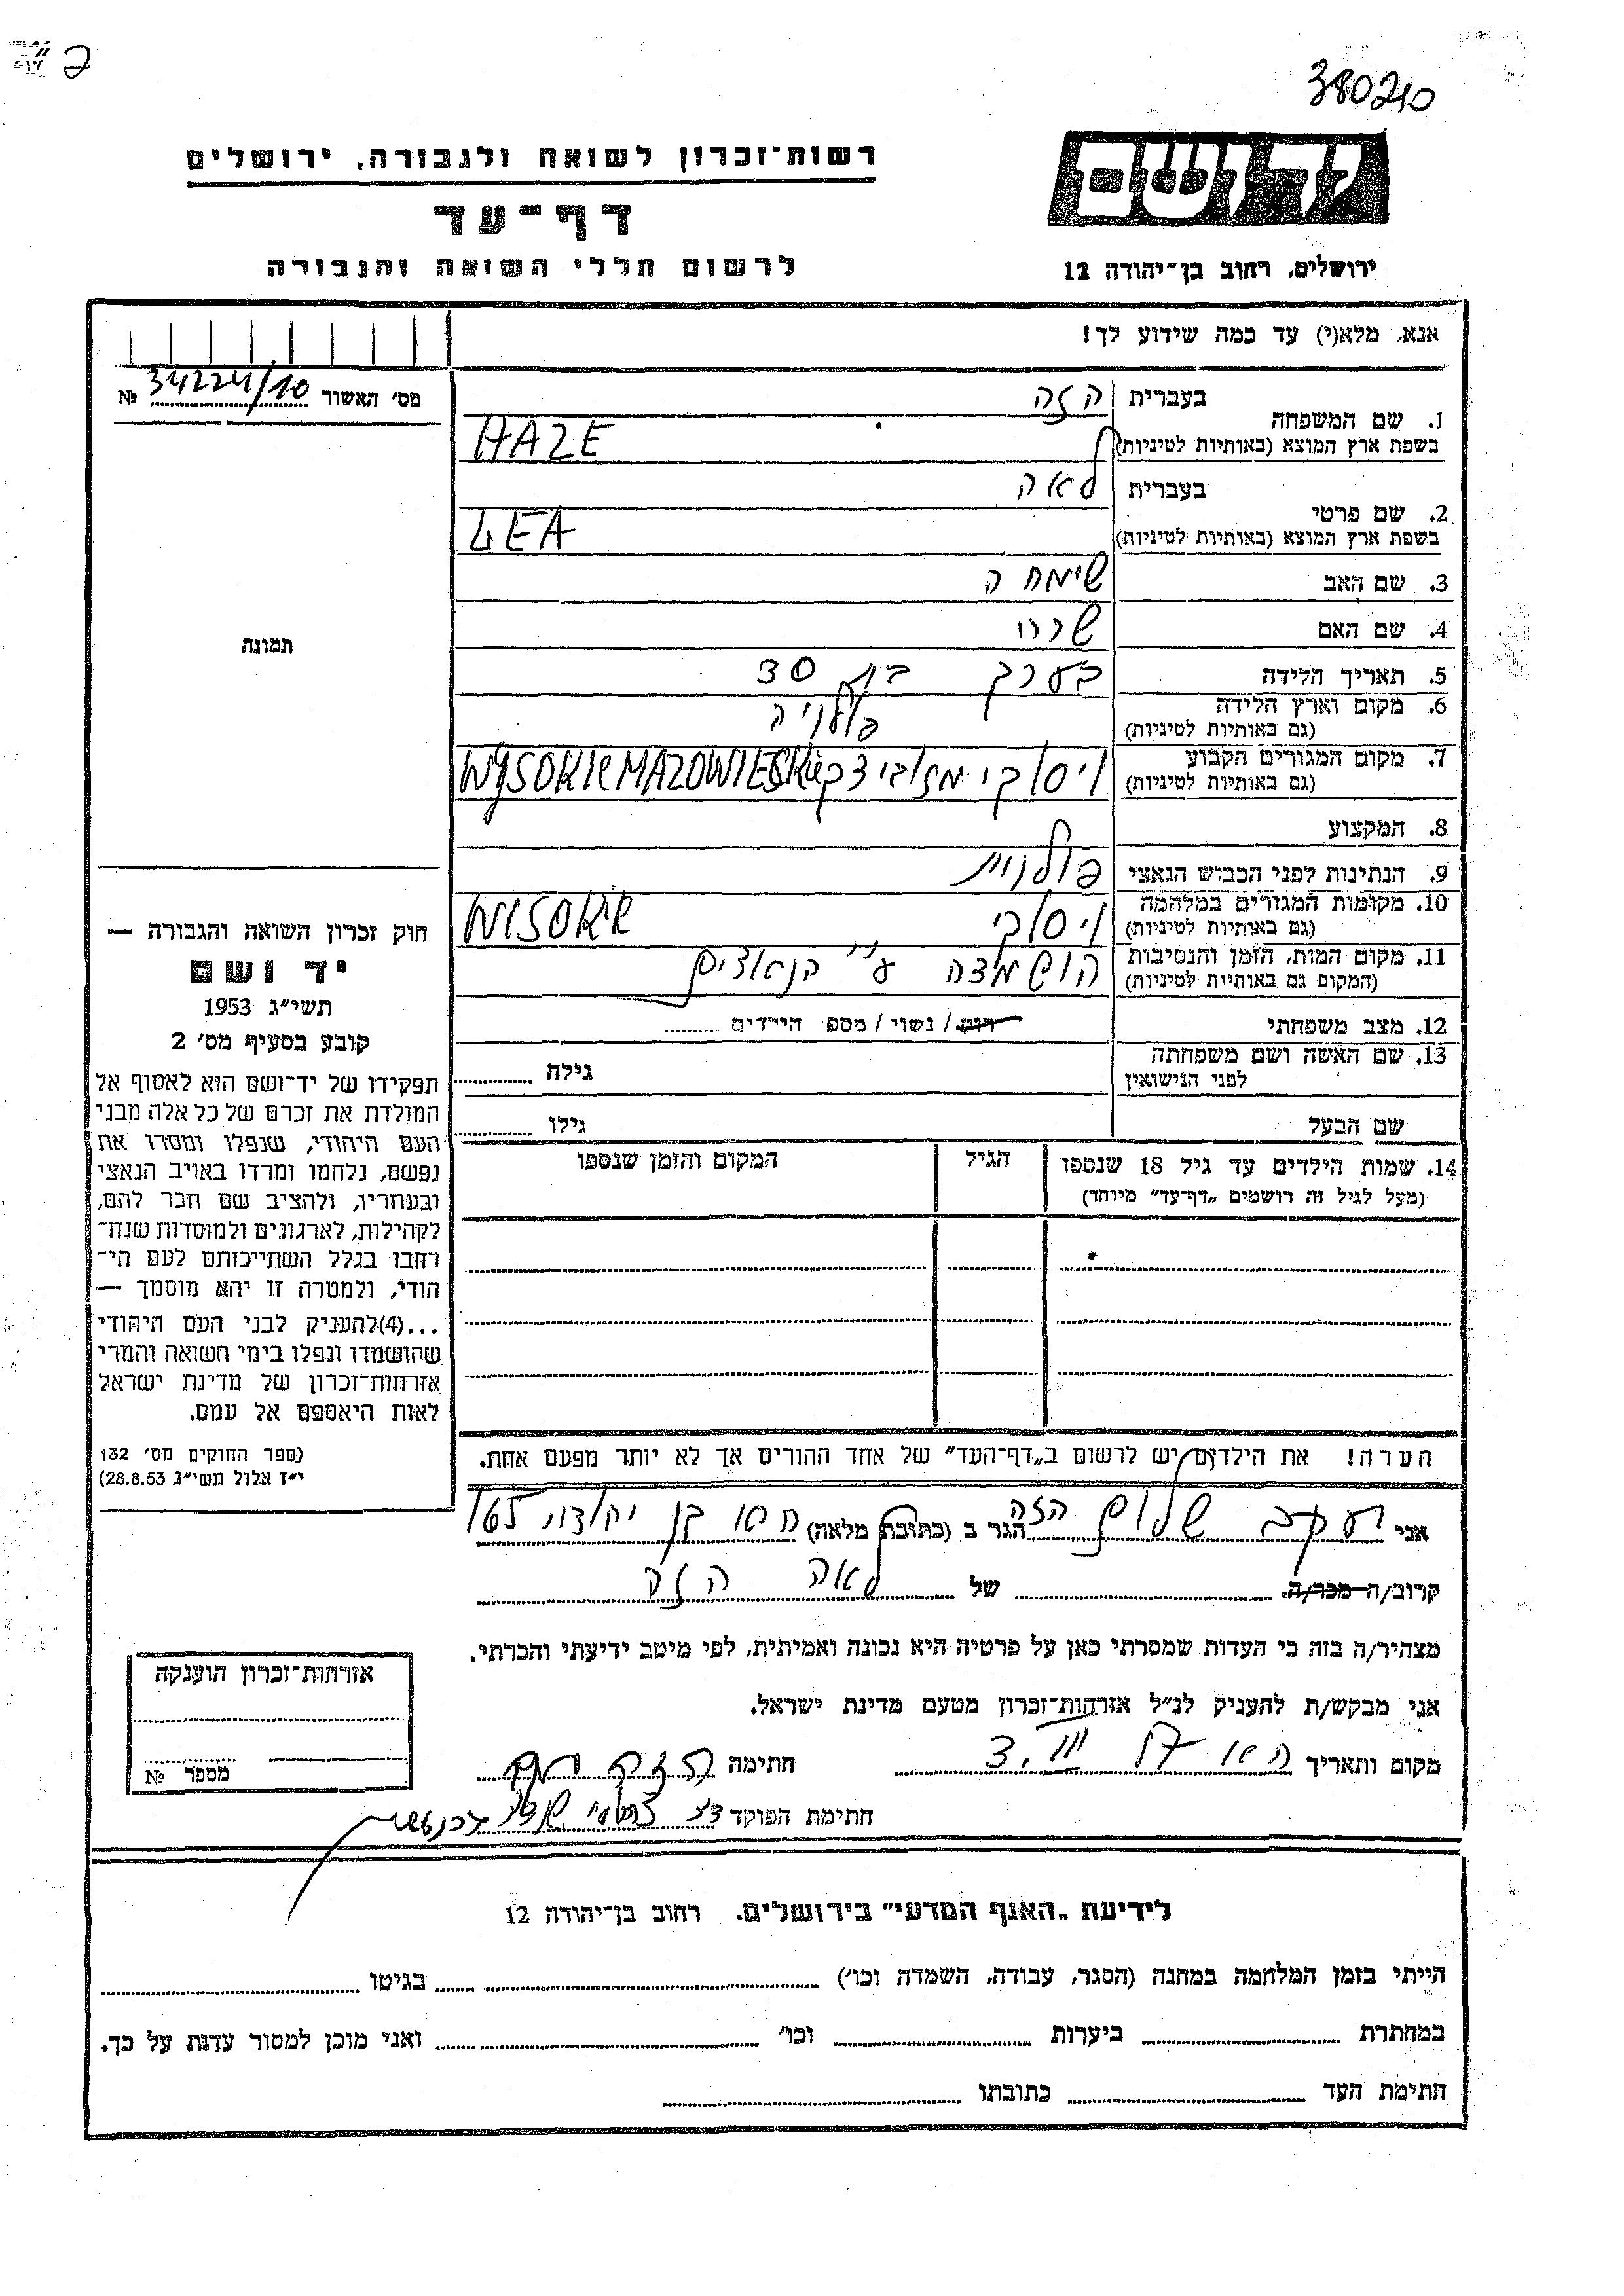 380210
רשות־זכרון לשואה ולגבורה, ירושלים
יד ושם
דף־עד
לרשום חללי השואה והגבורה
ירושלים, רחוב בן־יהודה 12
אנא, מלא(י) עד כמה שידוע לך!
מס׳ האשור 34224/10 №
1. שם המשפחה
בעברית הזה
בשפת ארץ המוצא (באותיות לטיניות) HAZE
2. שם פרטי
בעברית לאה
בשפת ארץ המוצא (באותיות לטיניות) LEA
3. שם האב שימחה
4. שם האם
תמונה
5. תאריך הלידה בערך בת 30
6. מקום וארץ הלידה פולניה
(גם באותיות לטיניות)
7. מקום המגורים הקבוע
(גם באותיות לטיניות) WYSOKIE MAZOWIESKIE
8. המקצוע
9. הנתינות לפני הכבוש הנאצי פולנית
10. מקומות המגורים במלחמה
(גם באותיות לטיניות) ויסוקי WISOKIE
11. מקום המות, הזמן והנסיבות הושמדה ע״י הנאצים
(המקום גם באותיות לטיניות)
12. מצב משפחתי רוק / נשוי / מספ הירדים
13. שם האשה ושם משפחתה
לפני הנישואין גילה
שם הבעל גילו
14. שמות הילדים עד גיל 18 שנספו הגיל המקום והזמן שנספו
(מעל לגיל זה רושמים „דף־עד״ מיוחד)
חוק זכרון השואה והגבורה —
יד ושם
תשי״ג 1953
קובע בסעיף מס׳ 2
תפקידו של יד־ושם הוא לאסוף אל
המולדת את זכרם של כל אלה מבני
העם היהודי, שנפלו ומסרו את
נפשם, נלחמו ומרדו באויב הנאצי
ובעוזריו, ולהציב שם וזכר להם,
לקהילות, לארגונים ולמוסדות שנח־
רחבו בגלל השתייכותם לעם הי־
הודי, ולמטרה זו יהא מוסמך —
...(4)להעניק לבני העם היהודי
שהושמדו ונפלו בימי השואה והמרי
אזרחות־זכרון של מדינת ישראל
לאות היאספם אל עמם.
(ספר החוקים מס׳ 132
י״ז אלול תשי״ג 28.8.53)
הערה! את הילדים יש לרשום ב„דף־העד״ של אחד ההורים אך לא יותר מפעם אחת.
אני יעקב שלום הזה הגר ב (כתובת מלאה)
קרוב/ה מכר/ה של לאה הזה
מצהיר/ה בזה כי העדות שמסרתי כאן על פרטיה היא נכונה ואמיתית, לפי מיטב ידיעתי והכרתי.
אני מבקש/ת להעניק לנ״ל אזרחות־זכרון מטעם מדינת ישראל.
מקום ותאריך 3. III חתימה
חתימת הפוקד
אזרחות־זכרון הוענקה
מספר №
לידיעת „האגף המדעי״ בירושלים. רחוב בן־יהודה 12
הייתי בזמן המלחמה במחנה (הסגר, עבודה, השמדה וכו׳) בגיטו
במחתרת ביערות וכו׳ ואני מוכן למסור עדות על כך.
חתימת העד כתובתו